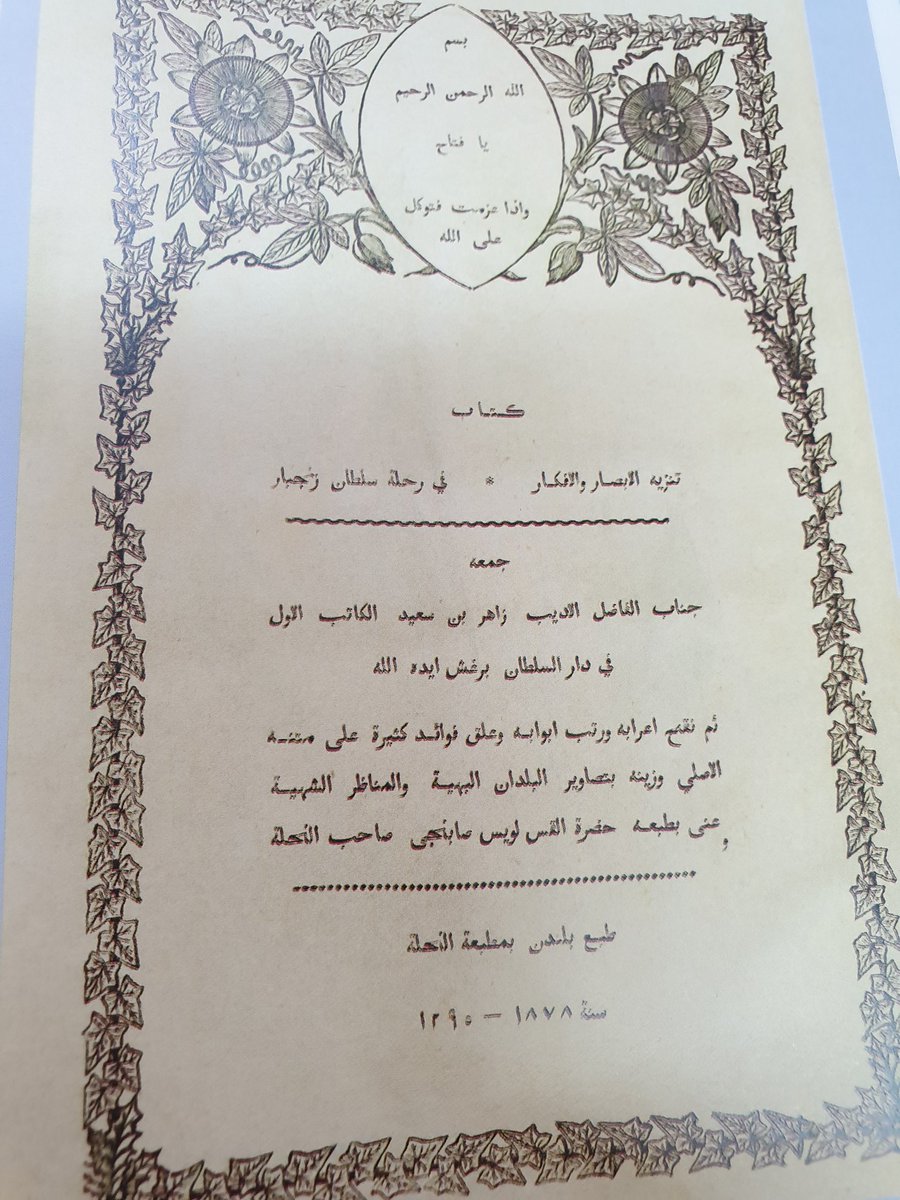 بسم
الله الرحمن الرحيم
يا فتاح
واذا عزمت فتوكل
على الله
كتاب
تنزيه الابصار والافكار * في رحلة سلطان زنجبار
جمعه
جناب الفاضل الاديب زاهر بن سعيد الكاتب الاول
في دار السلطان برغش ايده الله
ثم نقح اعرابه ورتب ابوابه وعلق فوائد كثيرة على متنه
الاصلي وزينه بتصاوير البلدان البهية والمناظر الشهية
وعنى بطبعه حضرة القس لويس صابنجى صاحب النحلة
طبع بلندن بمطبعة النحلة
سنة ١٨٧٨ — ١٢٩٥